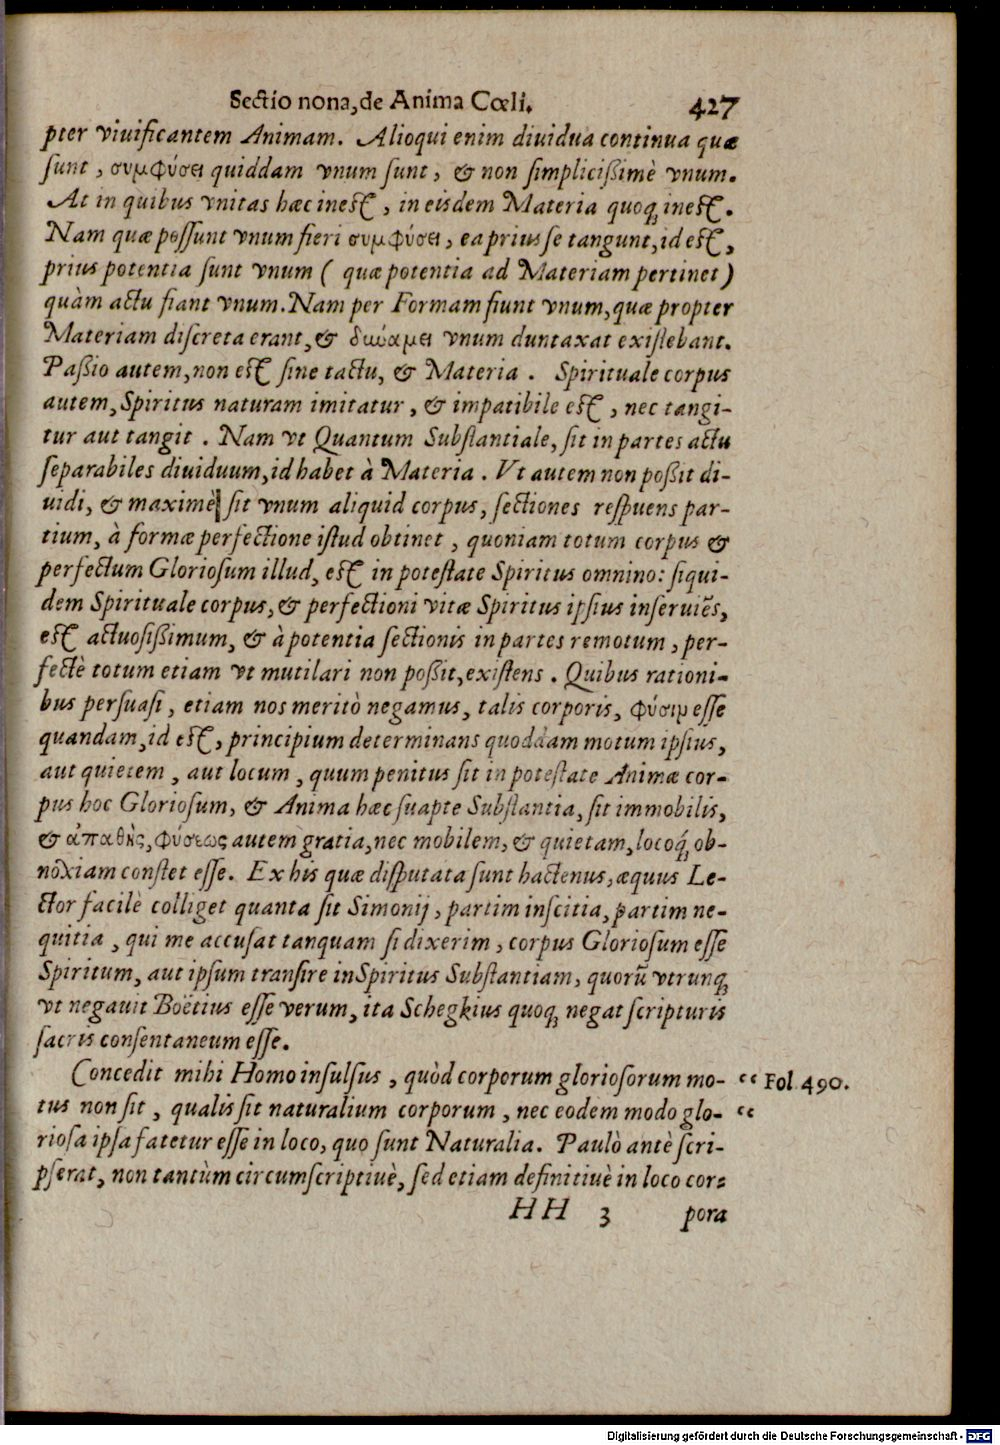 Sectio nona, de Anima Cœli. 427
pter viuificantem Animam. Alioqui enim diuidua continua quæ
sunt, συμφύσει quiddam vnum sunt, & non simplicißimè vnum.
At in quibus vnitas hæc inest, in eisdem Materia quoq; inest.
Nam quæ possunt vnum fieri συμφύσει, ea prius se tangunt, id est,
prius potentia sunt vnum ( quæ potentia ad Materiam pertinet )
quàm actu fiant vnum. Nam per Formam fiunt vnum, quæ propter
Materiam discreta erant, & δυνάμει vnum duntaxat existebant.
Paßio autem, non est sine tactu, & Materia . Spirituale corpus
autem, Spiritus naturam imitatur, & impatibile est, nec tangi-
tur aut tangit . Nam vt Quantum Substantiale, sit in partes actu
separabiles diuiduum, id habet à Materia . Vt autem non poßit di-
uidi, & maximè sit vnum aliquid corpus, sectiones respuens par-
tium, à formæ perfectione istud obtinet, quoniam totum corpus &
perfectum Gloriosum illud, est in potestate Spiritus omnino: siqui-
dem Spirituale corpus, & perfectioni vitæ Spiritus ipsius inseruiẽs,
est actuosißimum, & à potentia sectionis in partes remotum, per-
fectè totum etiam vt mutilari non poßit, existens . Quibus rationi-
bus persuasi, etiam nos meritò negamus, talis corporis, φύσιμ esse
quandam, id est, principium determinans quoddam motum ipsius,
aut quietem, aut locum, quum penitus sit in potestate Animæ cor-
pus hoc Gloriosum, & Anima hæc suapte Substantia, sit immobilis,
& ἀπαθὴς, φύσεως autem gratia, nec mobilem, & quietam, locoq́; ob-
noxiam constet esse. Ex his quæ disputata sunt hactenus, æquus Le-
ctor facilè colliget quanta sit Simonij, partim inscitia, partim ne-
quitia, qui me accusat tanquam si dixerim, corpus Gloriosum esse
Spiritum, aut ipsum transire in Spiritus Substantiam, quorũ vtrunq;
vt negauit Boëtius esse verum, ita Schegkius quoq; negat scripturis
sacris consentaneum esse.
Concedit mihi Homo insulsus, quòd corporum gloriosorum mo- “ Fol 490.
tus non sit, qualis sit naturalium corporum, nec eodem modo glo- “
riosa ipsa fatetur esse in loco, quo sunt Naturalia. Paulò antè scri-
pserat, non tantùm circumscriptiuè, sed etiam definitiuè in loco cor-
HH 3 pora
Digitalisierung gefördert durch die Deutsche Forschungsgemeinschaft - DFG